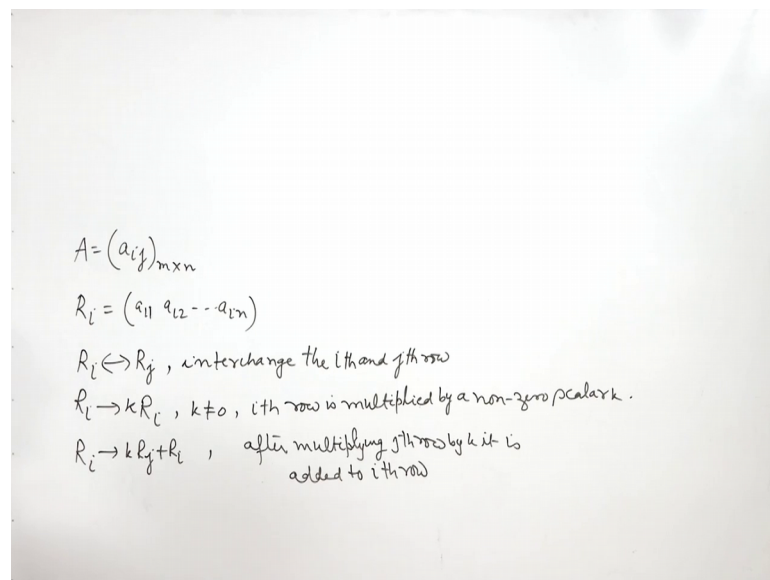 A = (aij)m×n
Ri = (a11 ai2 - - - ain)
Ri ↔ Rj , interchange the ith and jth row
Ri → kRi , k ≠ 0 , ith row is multiplied by a non-zero scalar k .
Ri → kRj + Ri , after multiplying jth row by k it is
added to ith row